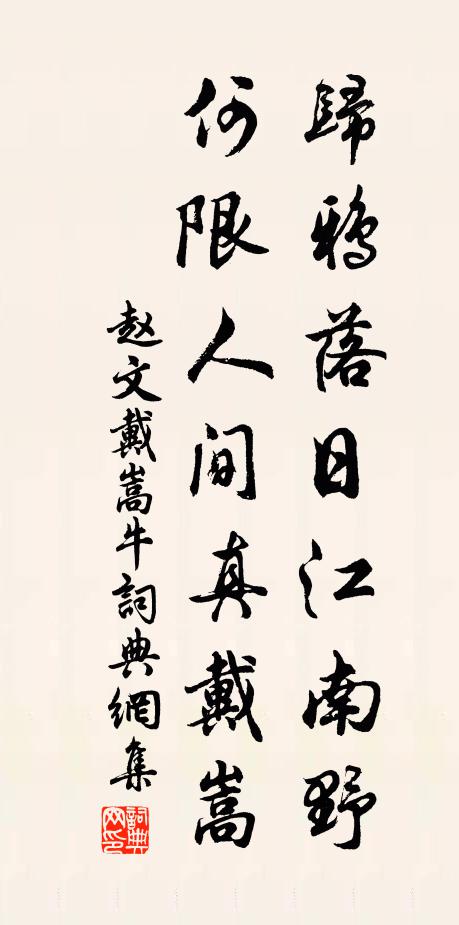 歸鴉落日江南野
何限人間真戴嵩
赵文戴嵩牛詞典網集
詞典
网印